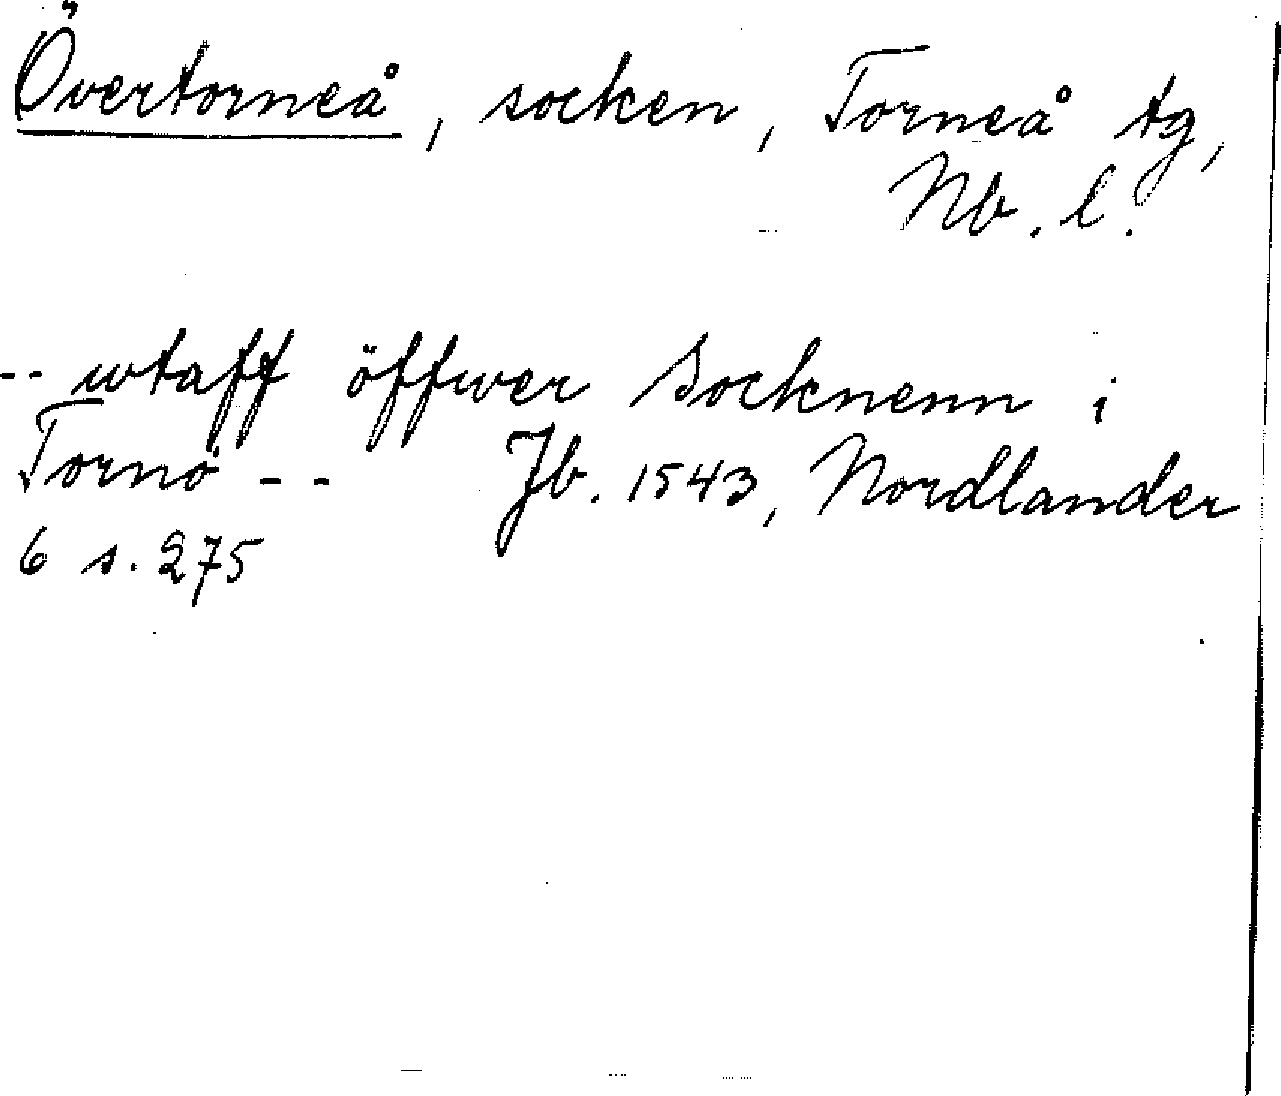 Övertorneå, socken, Torneå tg,
Nb. l.
-- wtaff öffwer Socknenn i
Tornö -- Jb. 1543, Nordlander
6 s. 275